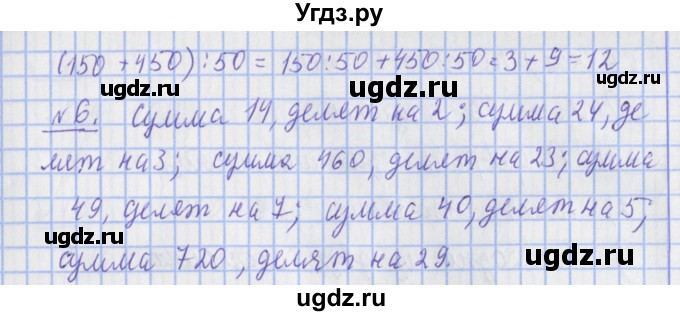 Угдз.ру
(150 + 450) : 50 = 150 : 50 + 450 : 50 = 3 + 9 = 12
ugdz.ru ugdz.ru
№6. Сумма 14, делят на 2; сумма 24, де
ugdz.ru
лят на 3; сумма 460, делят на 23; сумма
ugdz.ru ugdz.ru
49, делят на 7; сумма 40, делят на 5;
ugdz.ru ugdz.ru
сумма 720, делят на 29.
ugdz.ru
ugdz.ru